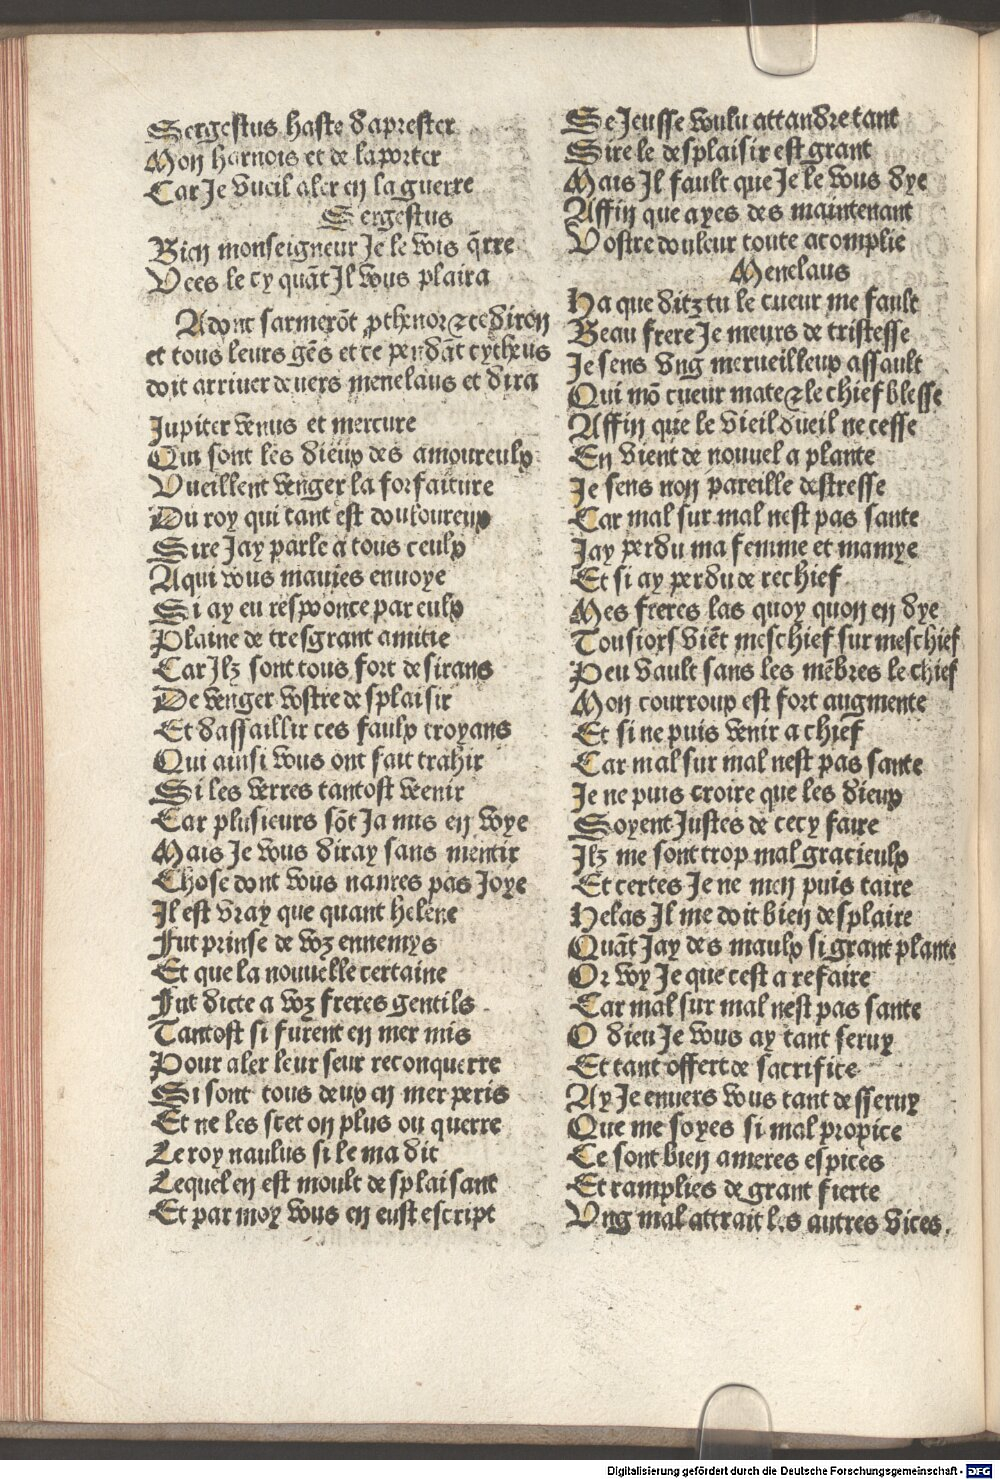 Sergestus haste daprester
Mon harnois et de laporter
Car Je vueil aler en la guerre
Sergestus
Bien monseigneur Je le vois q̃rre
Vees le cy quãt Il vous plaira
Adont sarmerõt pthenor ⁊ cediron
et tous leurs gẽs et ce pendãt cytheus
doit arriuer deuers menelaus et dira
Jupiter venus et mercure
Qui sont les dieux des amoureulx
Vueillent venger la forfaiture
Du roy qui tant est douloureux
Sire Jay parle a tous ceulx
Aqui vous mauies enuoye
Si ay eu responce par eulx
Plaine de tresgrant amitie
Car Ilz sont tous fort desirans
De venger vostre desplaisir
Et dassaillir ces faulx troyans
Qui ainsi vous ont fait trahir
Si les verres tantost veenir
Car plusieurs sõt Ja mis en voye
Mais Je vous diray sans mentir
Chose dont vous naures pas Joye
Il est vray que quant helene
Fut prinse de voz ennemys
Et que la nouuelle certaine
Fut dicte a voz freres gentils
Tantost si furent en mer mis
Pour aler leur seur reconquerre
Si sont tous deux en mer peris
Et ne les scet on plus ou querre
Le roy naulus si le ma dit
Lequel en est moult desplaisant
Et par moy vous en eust escript
Se Jeusse voulu attandre tant
Sire le desplaisir est grant
Mais Il fault que Je le vous dye
Affin que ayes des maintenant
Vostre douleur toute acomplie
Menelaus
Ha que ditz tu le cueur me fault
Beau frere Je meurs de tristesse
Je sens vng merueilleux assault
Qui mõ cueur mate ⁊ le chief blesse
Affin que le vieil dueil ne cesse
En vient de nouuel a plante
Je sens non pareille destresse
Car mal sur mal nest pas sante
Jay perdu ma femme et mamye
Et si ay perdu de rechief
Mes freres las quoy quon en dye
Tousiors viẽt meschief sur meschief
Peu vault sans les mẽbres le chief
Mon courroux est fort augmente
Et si ne puis venir a chief
Car mal sur mal nest pas sante
Je ne puis croire que les dieux
Soyent Justes de cecy faire
Ilz me sont trop mal gracieulx
Et certes Je ne men puis taire
Helas Il me doit bien desplaire
Quãt Jay des maulx si grant plante
Or voy Je que cest a refaire
Car mal sur mal nest pas sante
O dieu Je vous ay tant seruy
Et tant offert de sacrifice
Ay Je enuers vous tant desseruy
Que me soyes si mal propice
Ce sont bien ameres espices
Et ramplies de grant fierte
Vng mal attrait les autres vices.
Digitalisierung gefördert durch die Deutsche Forschungsgemeinschaft - DFG